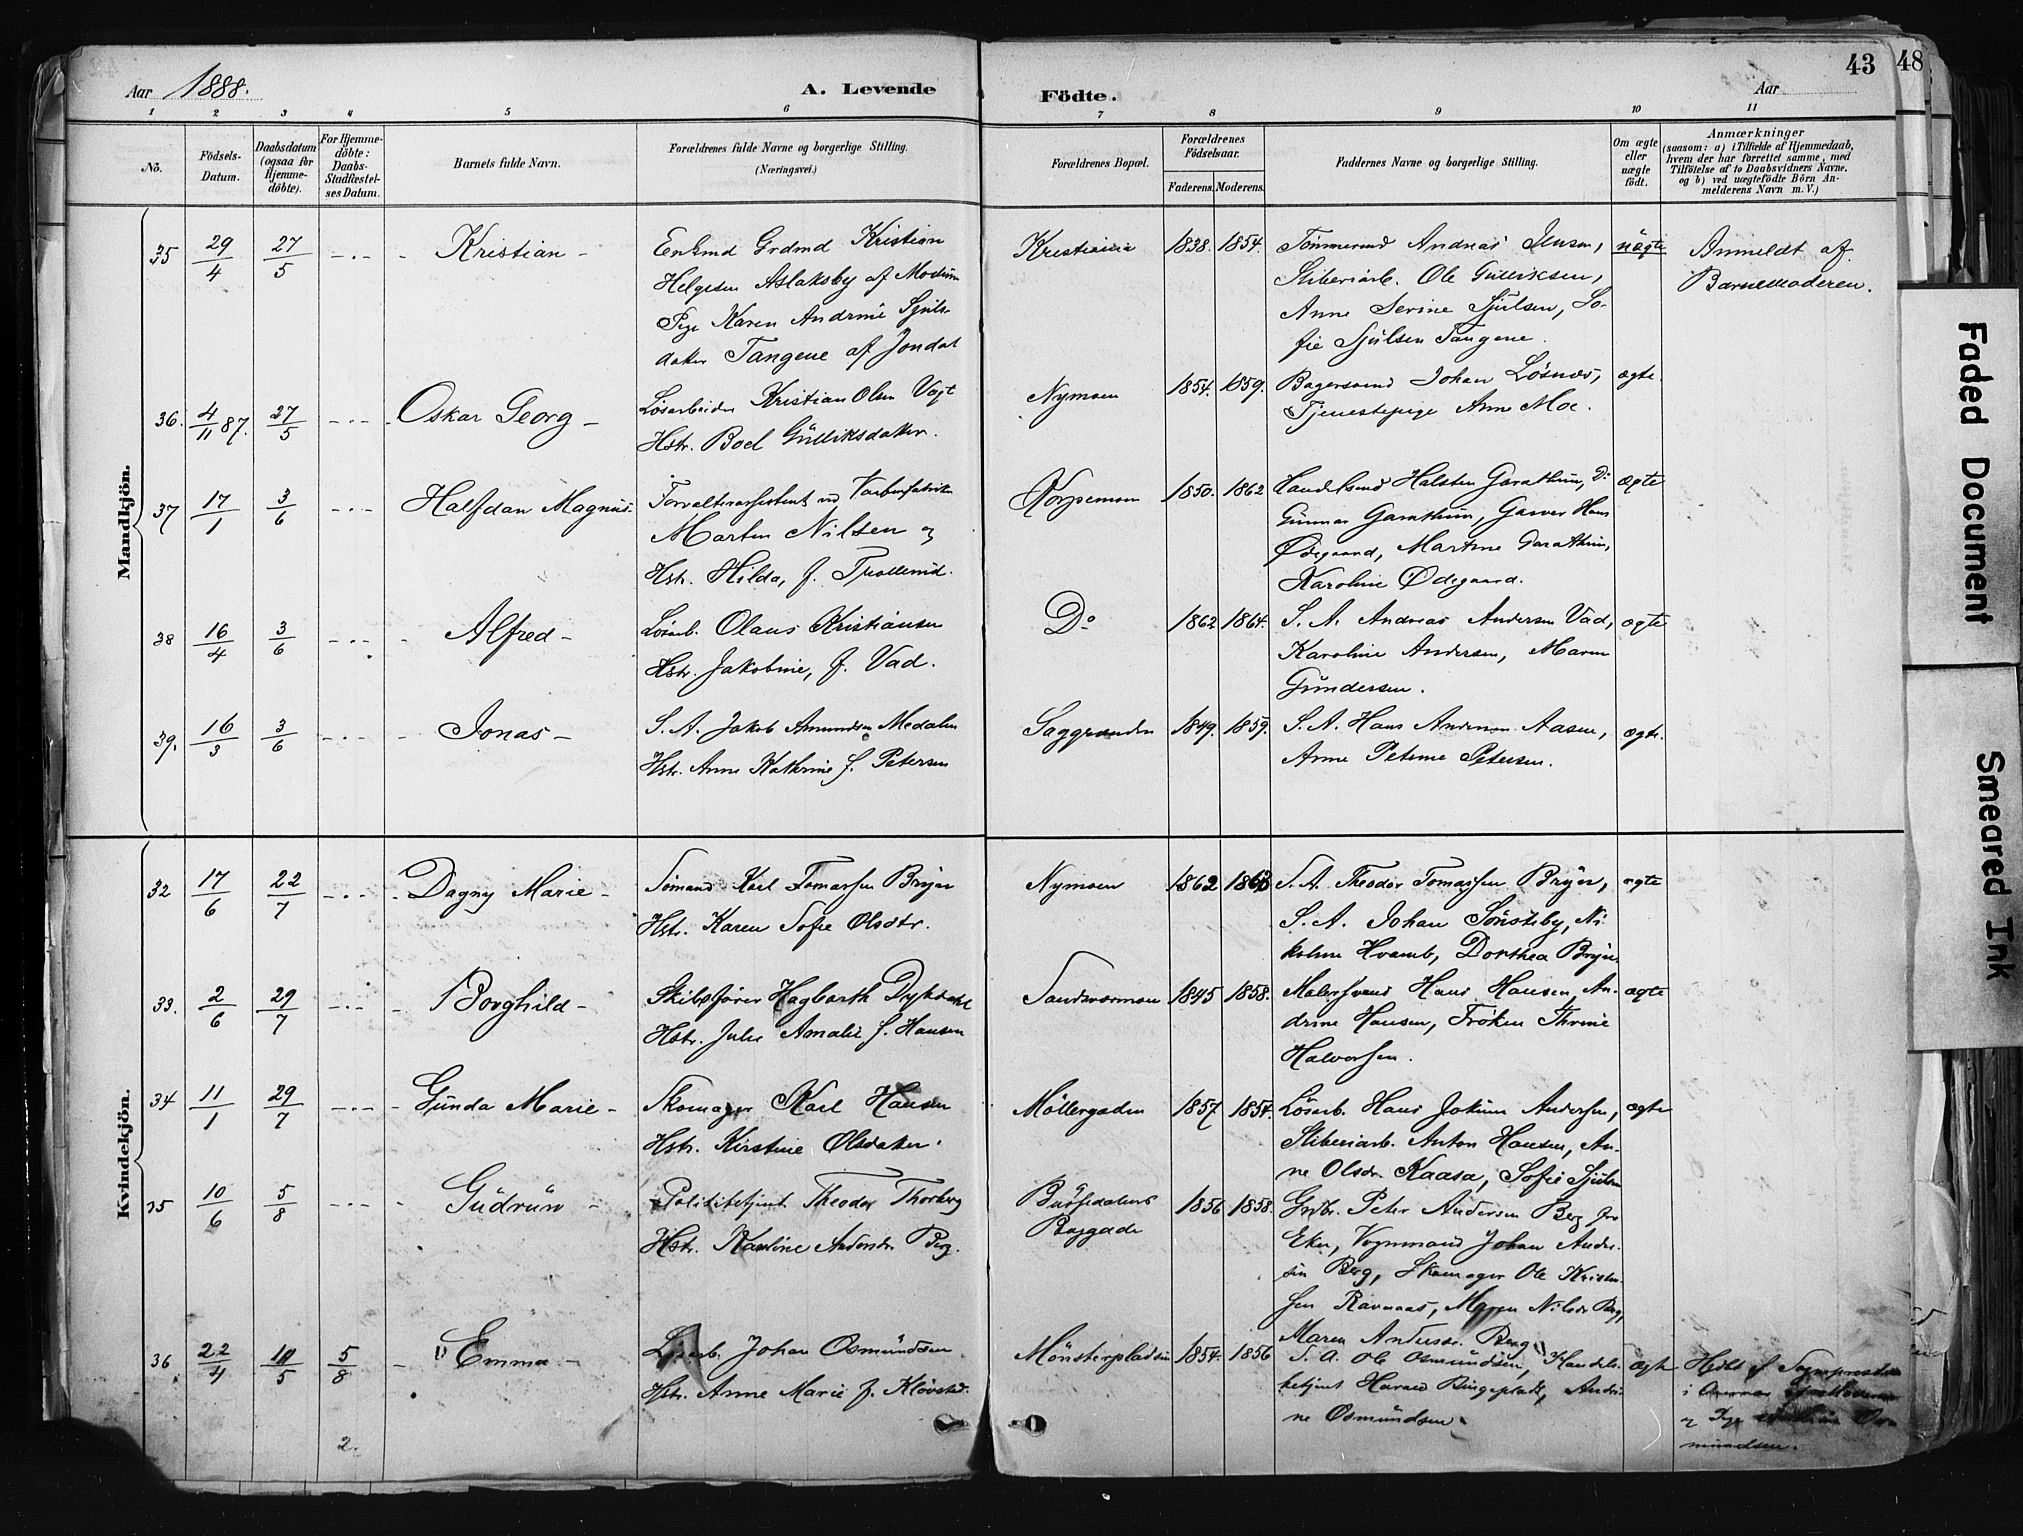 Aar 1888.
A. Levende
Födte.
Aar
43
48
1 2 3 4 5 6 7 8 9 10 11
No.
Födsels-
Datum.
Daabsdatum
(ogsaa for
Hjemme-
döbte).
For Hjemme-
döbte:
Daabs-
Stadfæstel-
ses Datum.
Barnets fulde Navn.
Forældrenes fulde Navne og borgerlige Stilling.
(Næringsvei.)
Forældrenes Bopæl.
Forældrenes
Födselsaar.
Faderens. Moderens.
Faddernes Navne og borgerlige Stilling.
Om ægte
eller
uægte
födt.
Anmærkninger
(saasom: a) i Tilfælde af Hjemmedaab,
hvem der har forrettet samme, med
Tilföielse af to Daabsvidners Navne,
og b) ved uægtefödte Börn An-
melderens Navn m. V.)
Mandkjön.
35 29/4 27/5 Kristian Enkmd Grdmd Kristian
Helgesen Aslaksby af Modum
Pige Karen Andrine Sjuls-
datter Tangene af Jondal
Kristiania 1838. 1854. Tömmermd Andreas Jensen,
Sliberiarb. Ole Gulliksen,
Anne Serine Sjulsen, So-
fie Sjulsen Tangene.
uægte Anmeldt af
Barnemoderen.
36. 4/11 87. 27/5 Oskar Georg Løsarbeider Kristian Olsen Vogt
Hstr. Boel Gulliksdatter.
Nymoen 1854. 1859. Bagersvend Johan Løsnæs,
Tjenestepige Anne Moe.
ægte.
37 17/1 3/6 Halfdan Magnus Forvalterassistent ved
Marten Nilsen og
Hstr. Hilda, f.
1850. 1862 Handelsmd Halsten Garathun, Do
Gunnar Garathun, Garver Hans
Ødegaard, Martine Garathun,
Karoline Ødegaard.
ægte
38 16/4 3/6 Alfred Løsarb. Olaus Kristiansen
Hstr. Jakobine, f. Vad.
Do 1862 1864. S. A. Andreas Andersen Vad,
Karoline Andersen, Maren
Gundersen.
ægte
39. 16/3 3/6 Jonas S. A. Jakob Amundsen Medalen
Hstr. Anne Kathrine f. Petersen
Saggrenden 1849. 1859. S. A. Hans Andersen Aasen,
Anne Petrine Petersen.
ægte.
Kvindekjön.
32 17/6 22/7 Dagny Marie Sömand Karl Tomassen Bryn
Hstr. Karen Sofie Olsdtr.
Nymoen 1862 S. A. Theodor Tomassen Bryn,
S. A. Johan Sönsteby, Ni-
koline Hvamb, Dorthea Bryn
ægte
33. 2/6 29/7 Borghild Skibsfører Hagbarth Dyksdahl
Hstr. Julie Amalie f. Hansen
Sandsværmoen 1845 1858. Malersvend Hans Hansen, An-
drine Hansen, Frøken Thrine
Halvorsen.
ægte
34 11/1 29/7 Gunda Marie Skomager Karl Hansen
Hstr. Kirstine Olsdatter.
Möllergaden 1857 1854. Løsarb. Hans Jokum Andersen,
Sliberiarb. Anton Hansen, An-
ne Olsdr Kaasa, Sofie Sjulsen
ægte
35 10/6 5/8 Gudrun Politibetjent Theodor Thorberg
Hstr. Karoline Andersdr Berg.
Bussedalens
Baggade
1856 1858. Grdbr. Peter Andersen Berg fra
Eker, Vognmand Johan Ander-
sen Berg, Skomager Ole Kristen-
sen Ravnaas, Maren Nilsdr Berg,
Maren Andersdr. Berg
36 22/4 10/5 5/8 Emma Løsarb. Johan Osmundsen
Hstr. Anne Marie f. Kløvstad.
Mönsterpladsen 1854. 1856 S. A. Ole Osmundsen, Handels-
betjent Harald Ringeplads, Andri-
ne Osmundsen.
ægte Hdbt af
i
og Pige Os-
mundsen.
2.
Faded Document
Smeared Ink